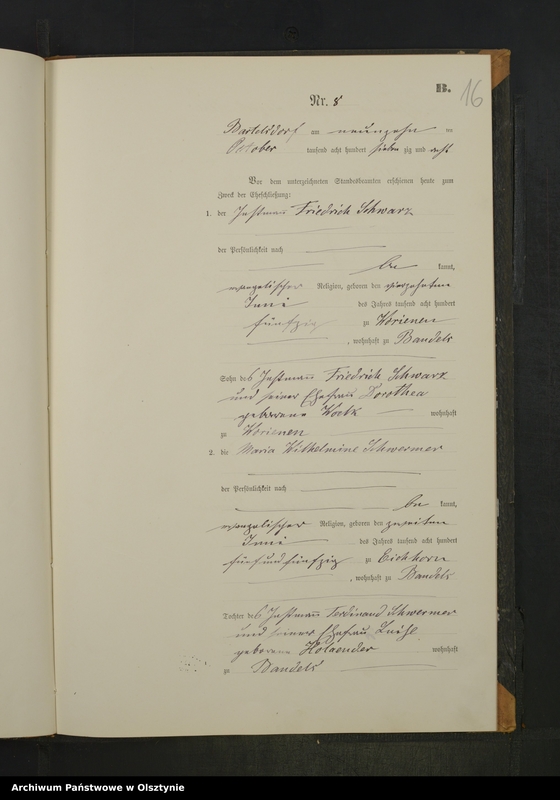 B.
16
Nr. 8
Bartelsdorf am neunzehn ten
October tausend acht hundert sieben zig und acht
Vor dem unterzeichneten Standesbeamten erschienen heute zum
Zweck der Eheschließung:
1. der Instmann Friedrich Schwarz
der Persönlichkeit nach
be kannt,
evangelischer Religion, geboren den vierzehnten
Juni des Jahres tausend acht hundert
fünfzig zu Worienen
, wohnhaft zu Bandels
Sohn des Instmann Friedrich Schwarz
und seiner Ehefrau Dorothea
geborene wohnhaft
zu Worienen
2. die Maria Wilhelmine Schwermer
der Persönlichkeit nach
be kannt,
evangelischer Religion, geboren den zweiten
Juni des Jahres tausend acht hundert
fünf und fünfzig zu Eichhorn
, wohnhaft zu Bandels
Tochter des Instmann Ferdinand Schwermer
und seiner Ehefrau
geborene Holaender wohnhaft
zu Bandels
Archiwum Państwowe w Olsztynie